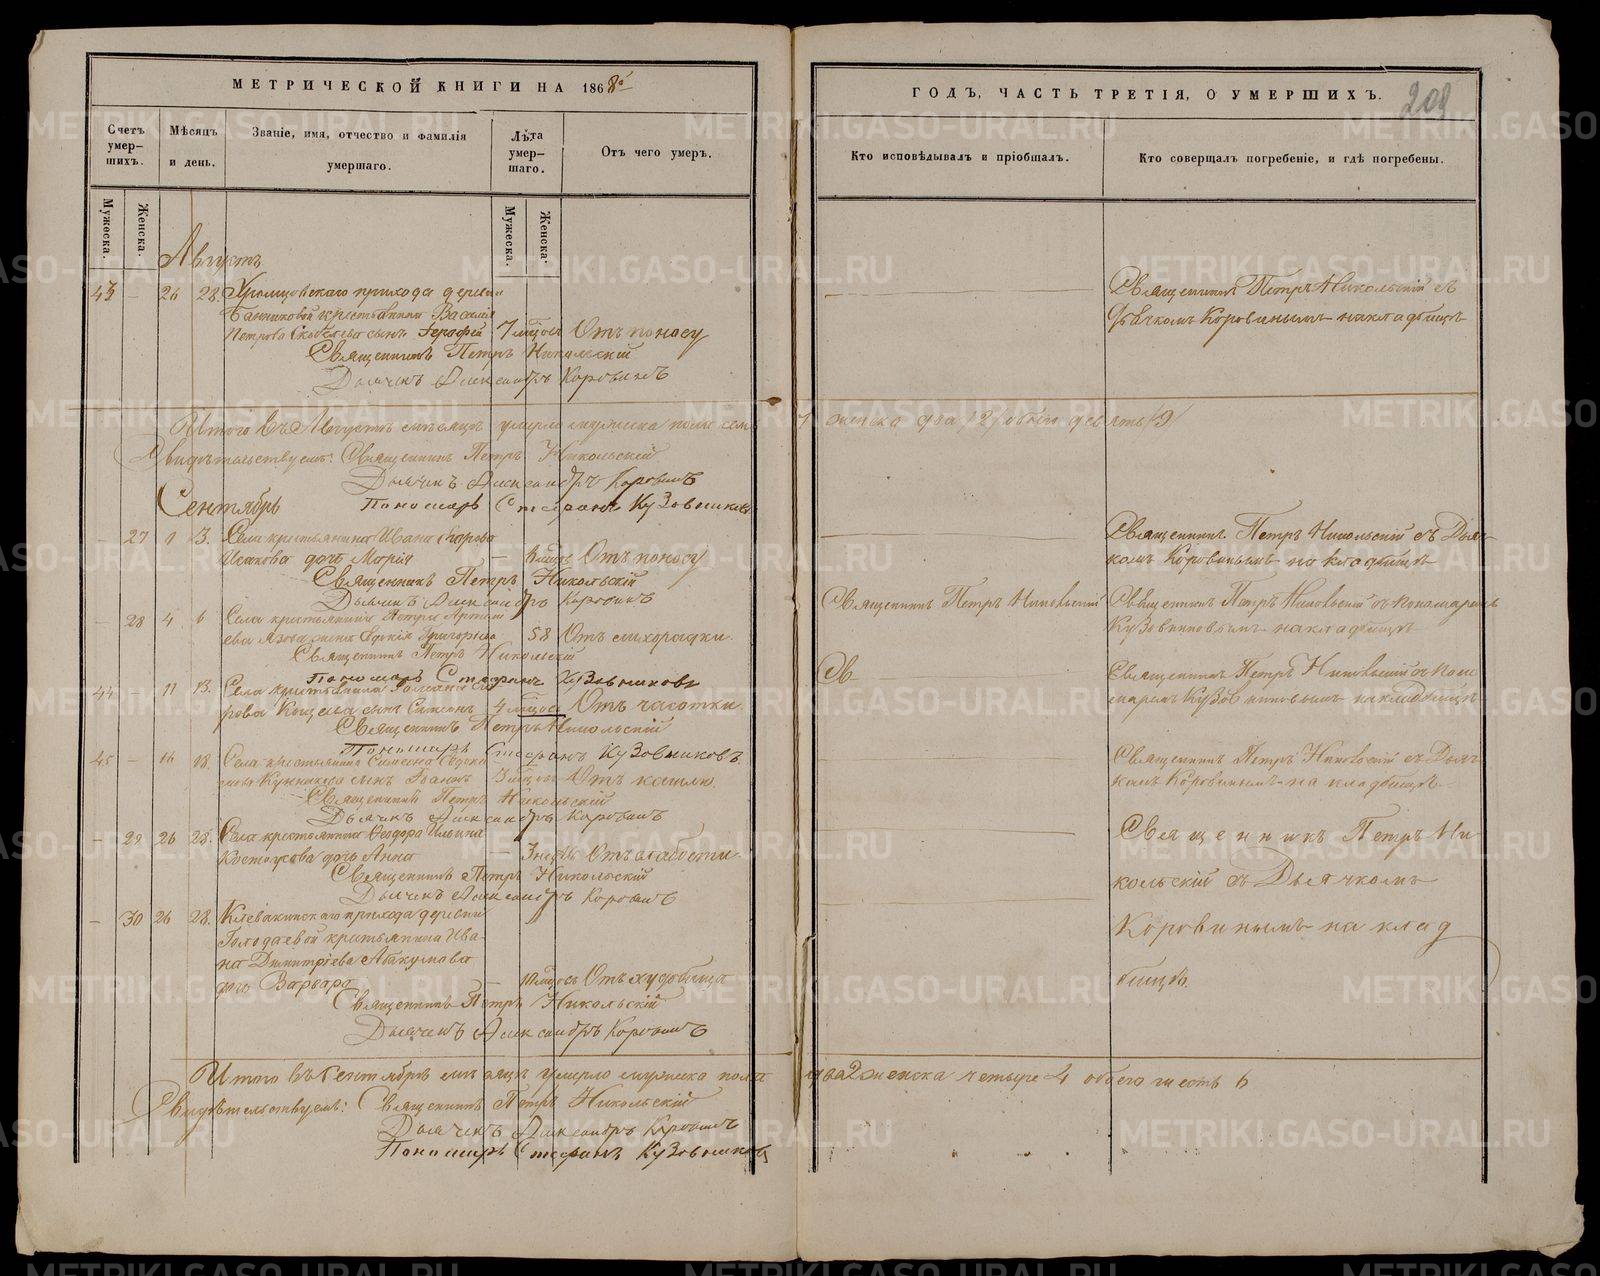 МЕТРИЧЕСКОЙ КНИГИ НА 1868й
ГОДЪ, ЧАСТЬ ТРЕТІЯ, О УМЕРШИХЪ.
208
Счетъ умер-
шихъ.
Мѣсяцъ
и день.
Званіе, имя, отчество и фамилія
умершаго.
Лѣта
умер-
шаго.
Отъ чего умеръ.
Кто исповѣдывалъ и пріобщалъ.
Кто совершалъ погребеніе, и гдѣ погребены.
Мужеска.
Женска.
Мужеска.
Женска.
Августъ
43 – 26 28. прихода дерев
крестьянина Василія
Петрова сынъ Ерофей 7 мѣсяц Отъ поносу
Священникъ Петръ Никольскій съ
Дьячкомъ Коровинымъ на кладбищѣ
Священникъ Петръ Никольскій
Дьячекъ Александръ Коровинъ
Итого въ Августѣ мѣсяцѣ умерло мужеска пола сем
7 женска два /2/ обоего девять /9/
Свидѣтельствуемъ: Священникъ Петръ Никольскій
Дьячекъ Александръ Коровинъ
Пономарь Стефанъ Кузовниковъ
Сентябрь
– 27 1 3. Села крестьянина Ивана
дочь Марія – мѣсяц Отъ поносу
Священникъ Петръ Никольскій съ Дьяч-
комъ Коровинымъ на кладбищѣ
Священникъ Петръ Никольскій
Дьячекъ Александръ Коровинъ
– 28 4 6 Села крестьянина Петра Артем
ева Евдокія Григорьева 58 Отъ лихорадки
Священникъ Петръ Никольскій
Священникъ Петръ Никольскій съ Пономаремъ
Кузовниковымъ на кладбищѣ
Священникъ Петръ Никольскій
Пономарь Стефанъ Кузовниковъ
44 11 13. Села крестьянина
рова сынъ Симеонъ 4 мѣсяц Отъ чесотки
Св
Священникъ Петръ Никольскій съ Поно
маремъ Кузовниковымъ на кладбищѣ
Священникъ Петръ Никольскій
Пономарь Стефанъ Кузовниковъ
45 – 16 18. Села крестьянина Симеона
сынъ Іоаннъ 3 мѣсяц Отъ кашлю
Священникъ Петръ Никольскій съ Дьяч
комъ Коровинымъ на кладбищѣ
Священникъ Петръ Никольскій
Дьячекъ Александръ Коровинъ
– 29 26 28. Села крестьянина Ѳеодора Ильина
дочь Анна – 3 недѣль Отъ слабости
Священникъ Петръ Ни
кольскій съ Дьячкомъ
Священникъ Петръ Никольскій
Дьячекъ Александръ Коровинъ
– 30 26 28. Клевакинскаго прихода деревни
Голодаевой крестьянина Ива-
на Димитріева Абакумова
дочь Варвара – 10 мѣсяц Отъ худобища
Коровинымъ на клад
бищѣ.
Священникъ Петръ Никольскій
Дьячекъ Александръ Коровинъ
Итого въ Сентябрѣ мѣсяцѣ умерло мужеска пола
два 2 женска четыре 4 обоего шесть 6
Свидѣтельствуемъ: Священникъ Петръ Никольскій
Дьячекъ Александръ Коровинъ
Пономарь Стефанъ Кузовниковъ
METRIKI.GASO-URAL.RU